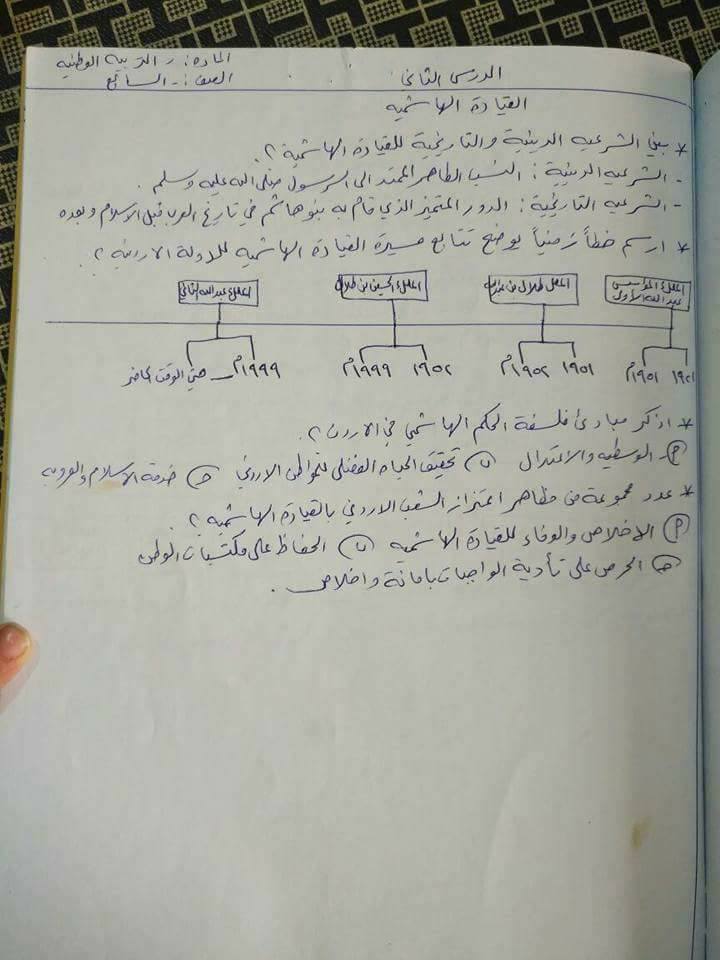 المادة :- التربية الوطنية
الدرس الثاني
الصف :- السابع
القيادة الهاشمية
* بيني الشرعية الدينية والتاريخية للقيادة الهاشمية ؟
- الشرعية الدينية : النسب الطاهر الممتد الى الرسول صلى الله عليه وسلم .
- الشرعية التاريخية : الدور المتميز الذي قام به بنو هاشم في تاريخ العرب قبل الاسلام وبعده
* ارسم خطاً زمنياً يوضح تتابع مسيرة القيادة الهاشمية للدولة الاردنية ؟
الملك المؤسس عبدالله الأول
الملك طلال بن عبدالله
الملك الحسين بن طلال
الملك عبدالله الثاني
١٩٢١ ١٩٥١م
١٩٥١ ١٩٥٢م
١٩٥٢ ١٩٩٩م
١٩٩٩م _ حتى الوقت الحاضر
* اذكر مبادئ فلسفة الحكم الهاشمي في الاردن ؟
أ- الوسطية والاعتدال ب تحقيق الحياه الفضلى للمواطن الاردني ج خدمة الاسلام والعروبه
* عدد مجموعة من مظاهر اعتزاز الشعب الاردني بالقيادة الهاشمية ؟
أ الاخلاص والوفاء للقيادة الهاشميه ب الحفاظ على مكتسبات الوطن
ج الحرص على تأدية الواجبات بامانة واخلاص .